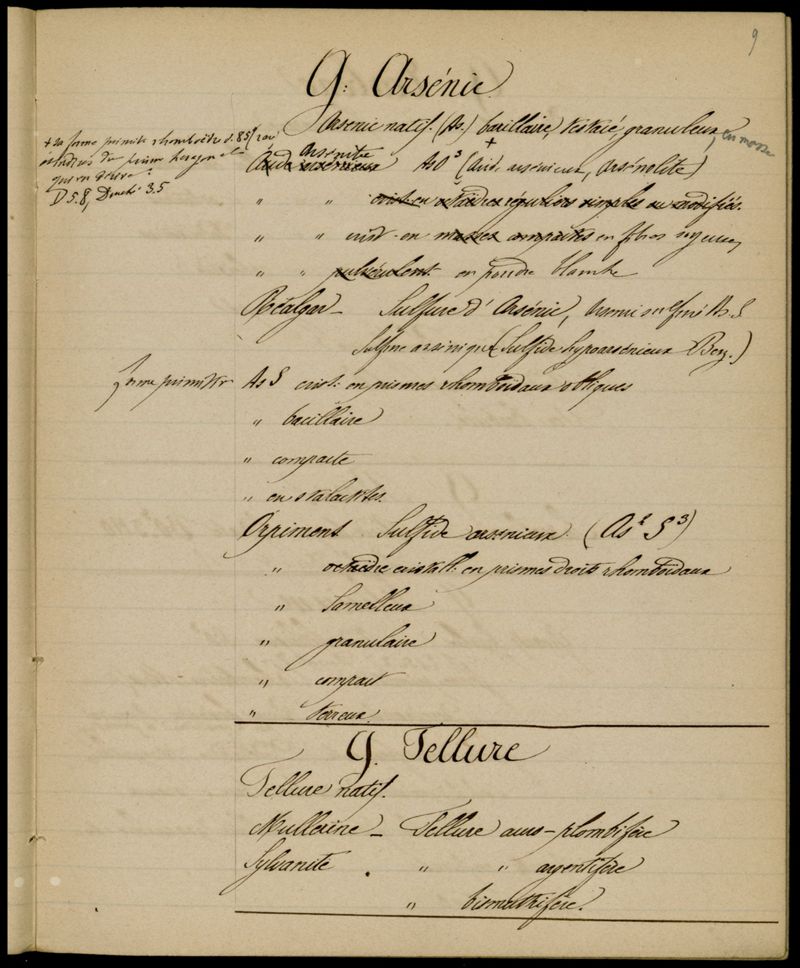 9
G. Arsénic
Arsenic natif. (As.) bacillaire, testacé, granuleux, en masse
+ sa forme primit. rhomboèdre d. 85
D 5.8, Dureté 3.5
Acide arsénieux Arsénite As O³ (Acid. arsénieux, Arsénolite)
" " crist. en octaèdres réguliers simples ou modifiés.
" " crist. en masses compactes en fibres soyeuses
" " pulvérulent en poudre blanche
Réalgar – Sulfure d'Arsénic, As S
(Sulfide hypoarsénieux Berz.)
forme primitive As S crist. en prismes rhomboïdaux obliques
" bacillaire
" compacte
" en stalactites.
Orpiment Sulfide arsénieux. (As² S³)
" octaèdre cristall. en prismes droits rhomboïdaux
" Lamelleux
" granulaire
" compact
" terreux.
G. Tellure
Tellure natif.
Mullerine – Tellure auro-plombifère
Sylvanite . " " argentifère
" bismuthifère.